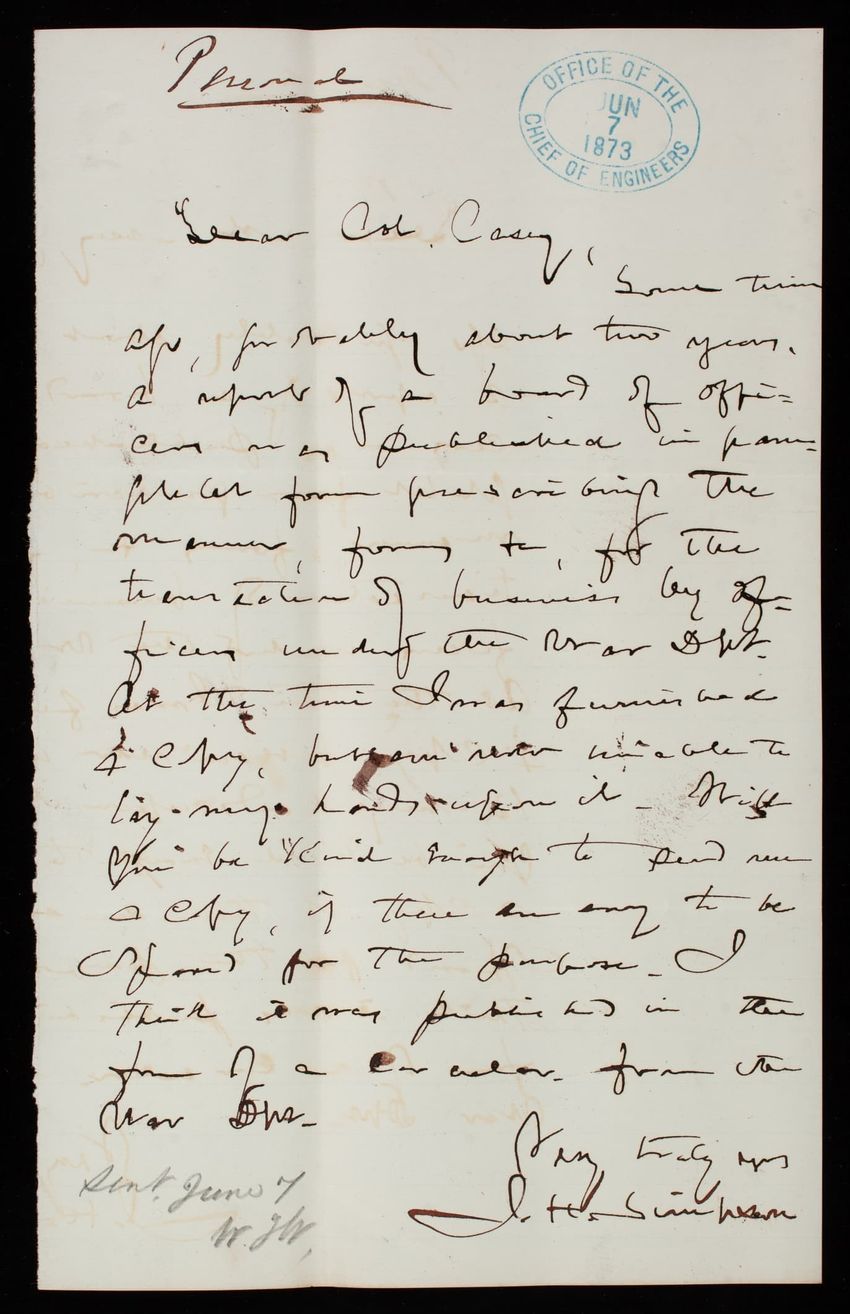 Personal
OFFICE OF THE
JUN
7
1873
CHIEF OF ENGINEERS
Dear Col. Casey,
Some time
ago, probably about two years,
a report of a board of offi=
cers was published in pam=
phlet form prescribing the
manner, forms &c, for the
transaction of business by of=
ficers under the War Dpt.
At the time I was furnished
a copy, but am now unable to
lay my hands upon it - Will
you be kind enough to send me
a copy, if there are any to be
spared for the purpose - I
think it was published in the
form of a circular from the
War Dpt -
Very truly yrs
J. H. Simpson
Sent. June 7
W.